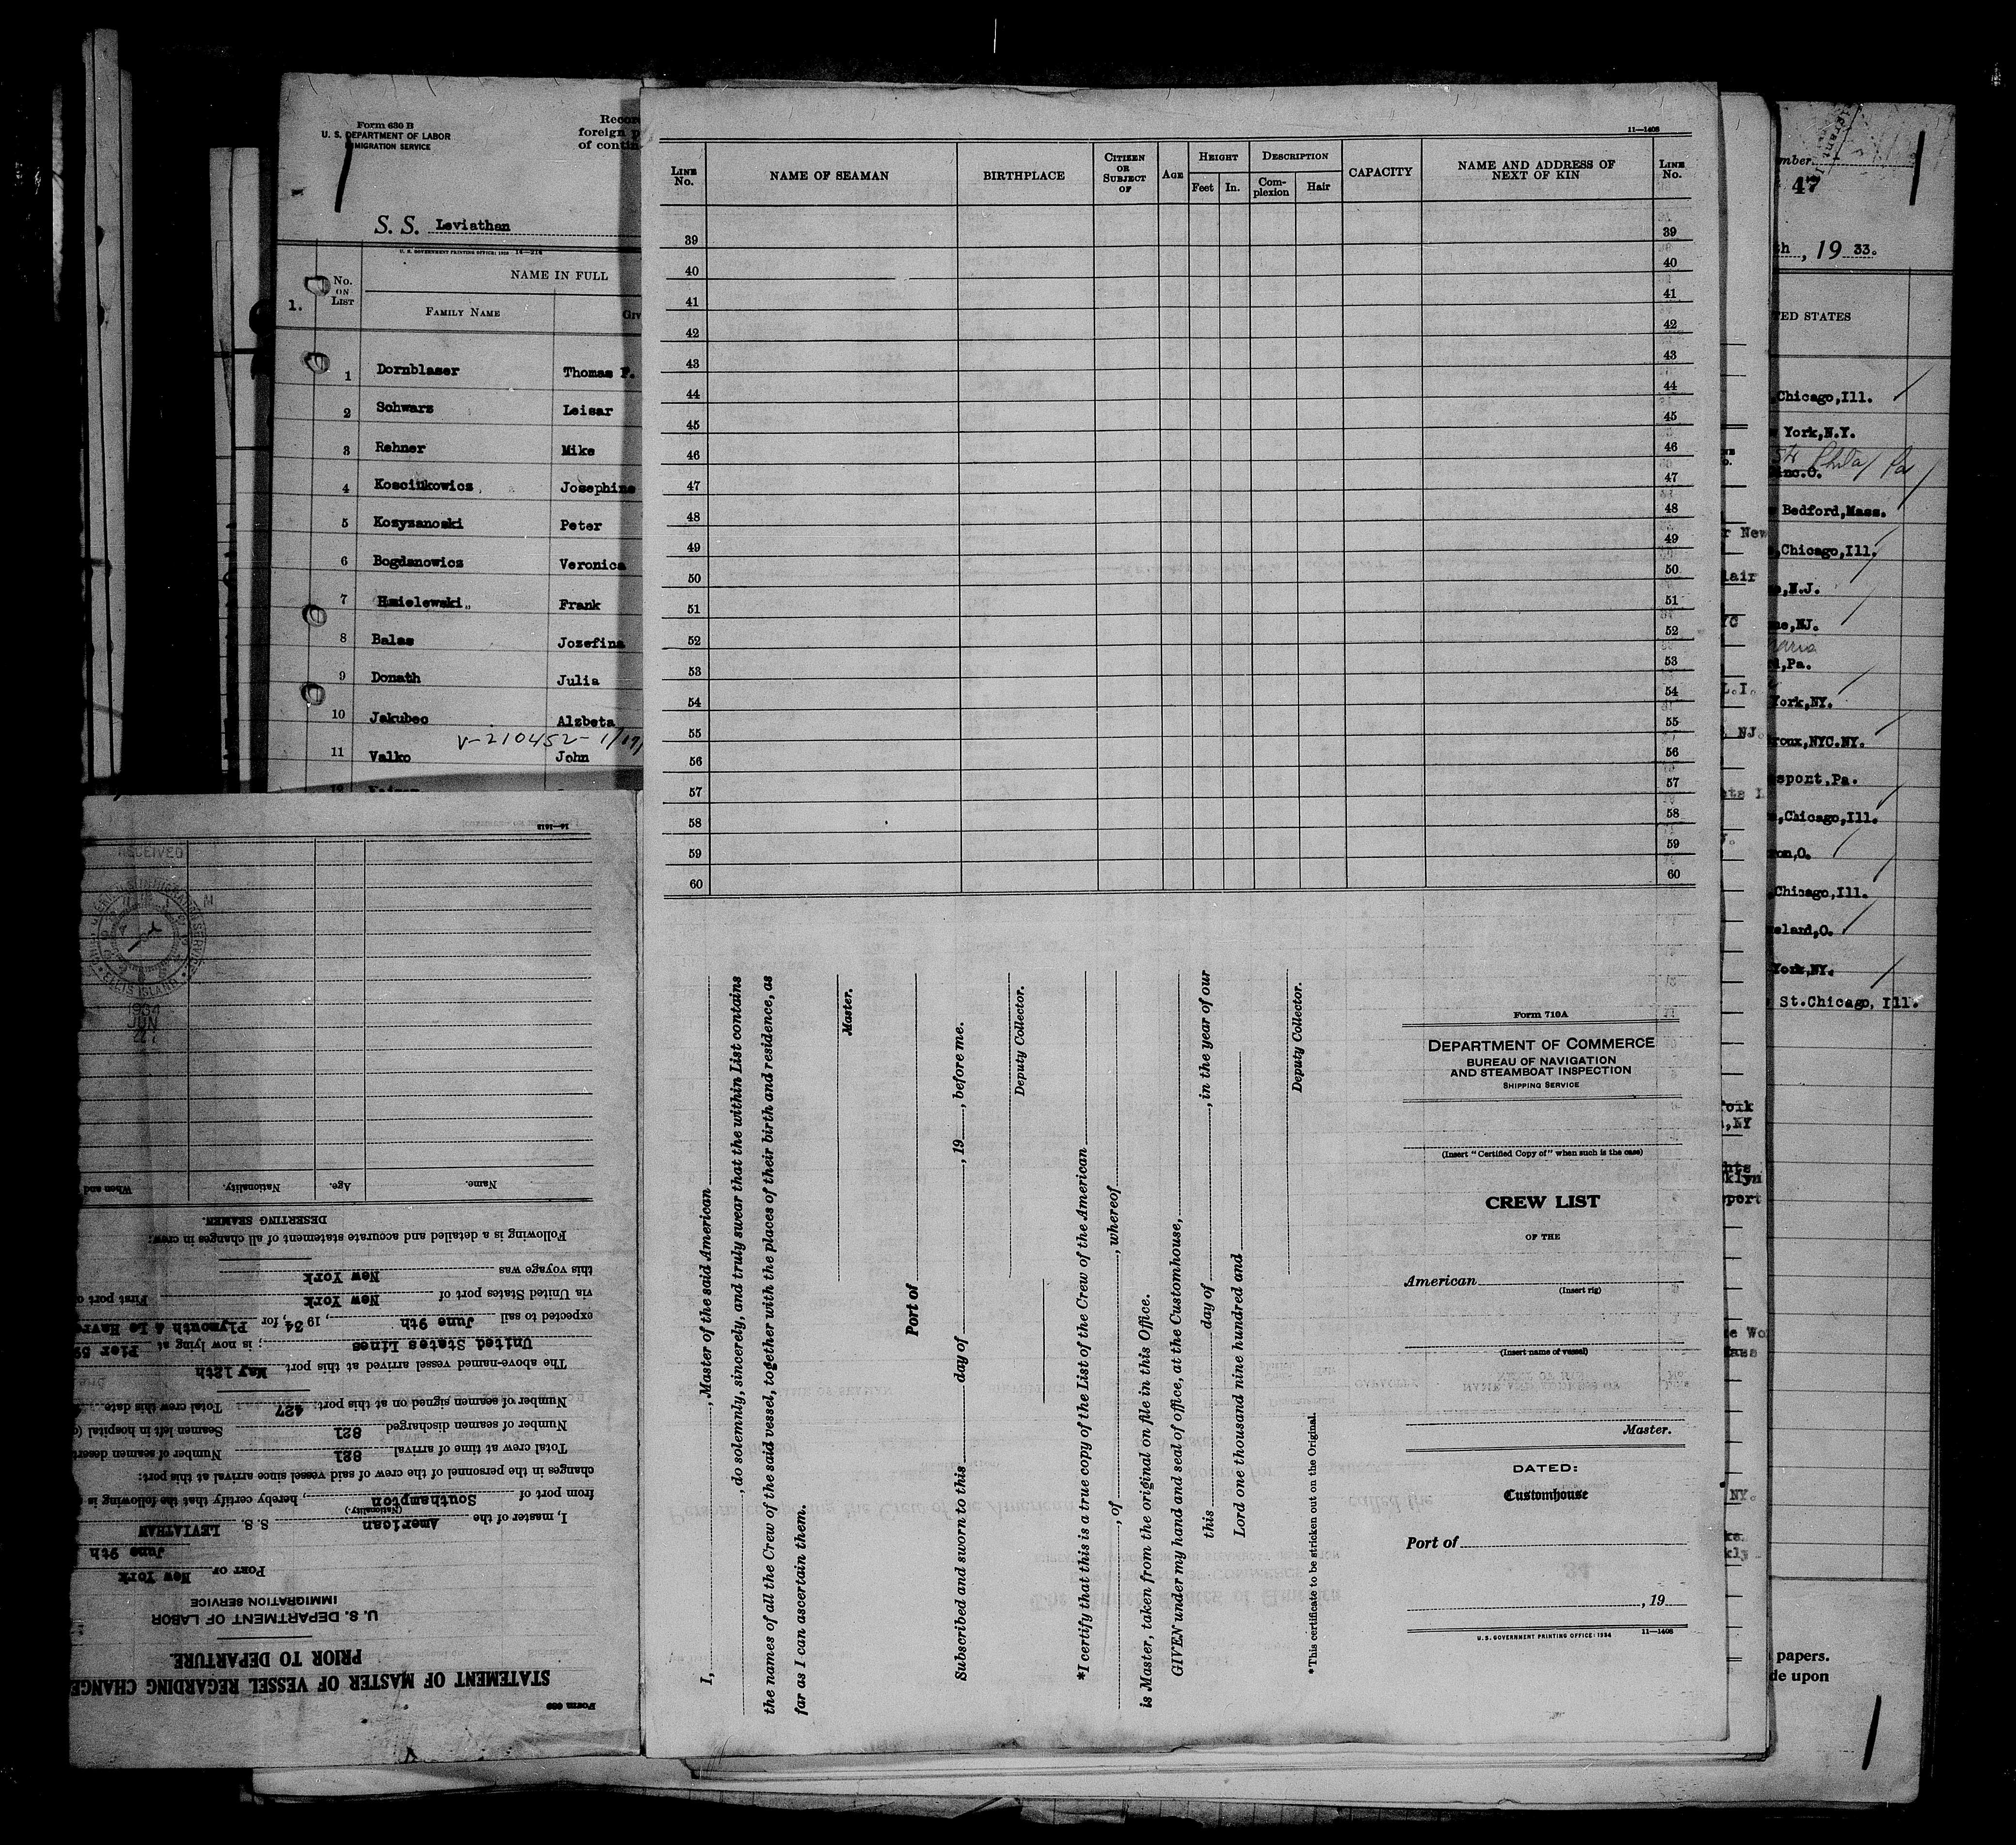 Form 630 B
U. S. DEPARTMENT OF LABOR
IMMIGRATION SERVICE
foreign
of
S. S. Leviathan
U. S. GOVERNMENT PRINTING OFFICE: 16—214
1.
No. ON LIST
NAME IN FULL
FAMILY NAME
1 Dornblaser Thomas F.
2 Schwarz Leisar
3 Rehner Mike
4 Kosciukowicz Josephine
5 Kozyzanoski Peter
6 Bogdanowicz Veronica
7 Hmielewski Frank
8 Balas Jozefina
9 Donath Julia
10 Jakubec Alzbeta
V-210452-
11 Valko John
12
11—1408
LINE No. NAME OF SEAMAN BIRTHPLACE CITIZEN OR SUBJECT OF AGE HEIGHT Feet In. DESCRIPTION Complexion Hair CAPACITY NAME AND ADDRESS OF NEXT OF KIN LINE No.
39 39
40 40
41 41
42 42
43 43
44 44
45 45
46 46
47 47
48 48
49 49
50 50
51 51
52 52
53 53
54 54
55 55
56 56
57 57
58 58
59 59
60 60
I, , Master of the said American
, do solemnly, sincerely, and truly swear that the within List contains
the names of all the Crew of the said vessel, together with the places of their birth and residence, as
far as I can ascertain them.
Master.
Port of
Subscribed and sworn to this day of , 19 , before me.
Deputy Collector.
*I certify that this is a true copy of the List of the Crew of the American
, of , whereof
is Master, taken from the original on file in this Office.
GIVEN under my hand and seal of office, at the Customhouse,
this day of , in the year of our
Lord one thousand nine hundred and
Deputy Collector.
*This certificate to be stricken out on the Original.
Form 710A
DEPARTMENT OF COMMERCE
BUREAU OF NAVIGATION
AND STEAMBOAT INSPECTION
SHIPPING SERVICE
(Insert "Certified Copy of" when such is the case)
CREW LIST
OF THE
American
(Insert rig)
(Insert name of vessel)
Master.
DATED:
Customhouse
Port of
, 19
U. S. GOVERNMENT PRINTING OFFICE: 1934 11—1408
47
, 19 33.
STATES
Chicago,Ill.
York,N.Y.
Phila Pa
Bedford,Mass.
Chicago,Ill.
N.J.
NJ.
Pa.
York,NY.
NYC.NY.
Pa.
Chicago,Ill.
O.
Chicago,Ill.
O.
York,NY.
St.Chicago, Ill.
New
L.I.
NJ.
NY
NY.
papers.
upon
Form 689
STATEMENT OF MASTER OF VESSEL REGARDING
PRIOR TO DEPARTURE.
U. S. DEPARTMENT OF LABOR
IMMIGRATION SERVICE
PORT OF New York
June 9th
I, master of the American S. S. LEVIATHAN
(Nationality.)
from port of Southampton, hereby certify that the following is
changes in the personnel of the crew of said vessel since arrival at this port:
Total crew at time of arrival 821 Number of seamen
Number of seamen discharged 821 Seamen left in hospital
Number of seamen signed on at this port: 427 Total crew this date
The above-named vessel arrived at this port May 12th
United States Lines ; is now lying at Pier 59
expected to sail June 9th, 1934, for Plymouth & Le Havre
via United States port of New York First port
this voyage was New York
Following is a detailed and accurate statement of all changes in crew:
DESERTING SEAMEN.
Name. Age. Nationality. When and
RECEIVED
ELLIS ISLAND
1934
JUN